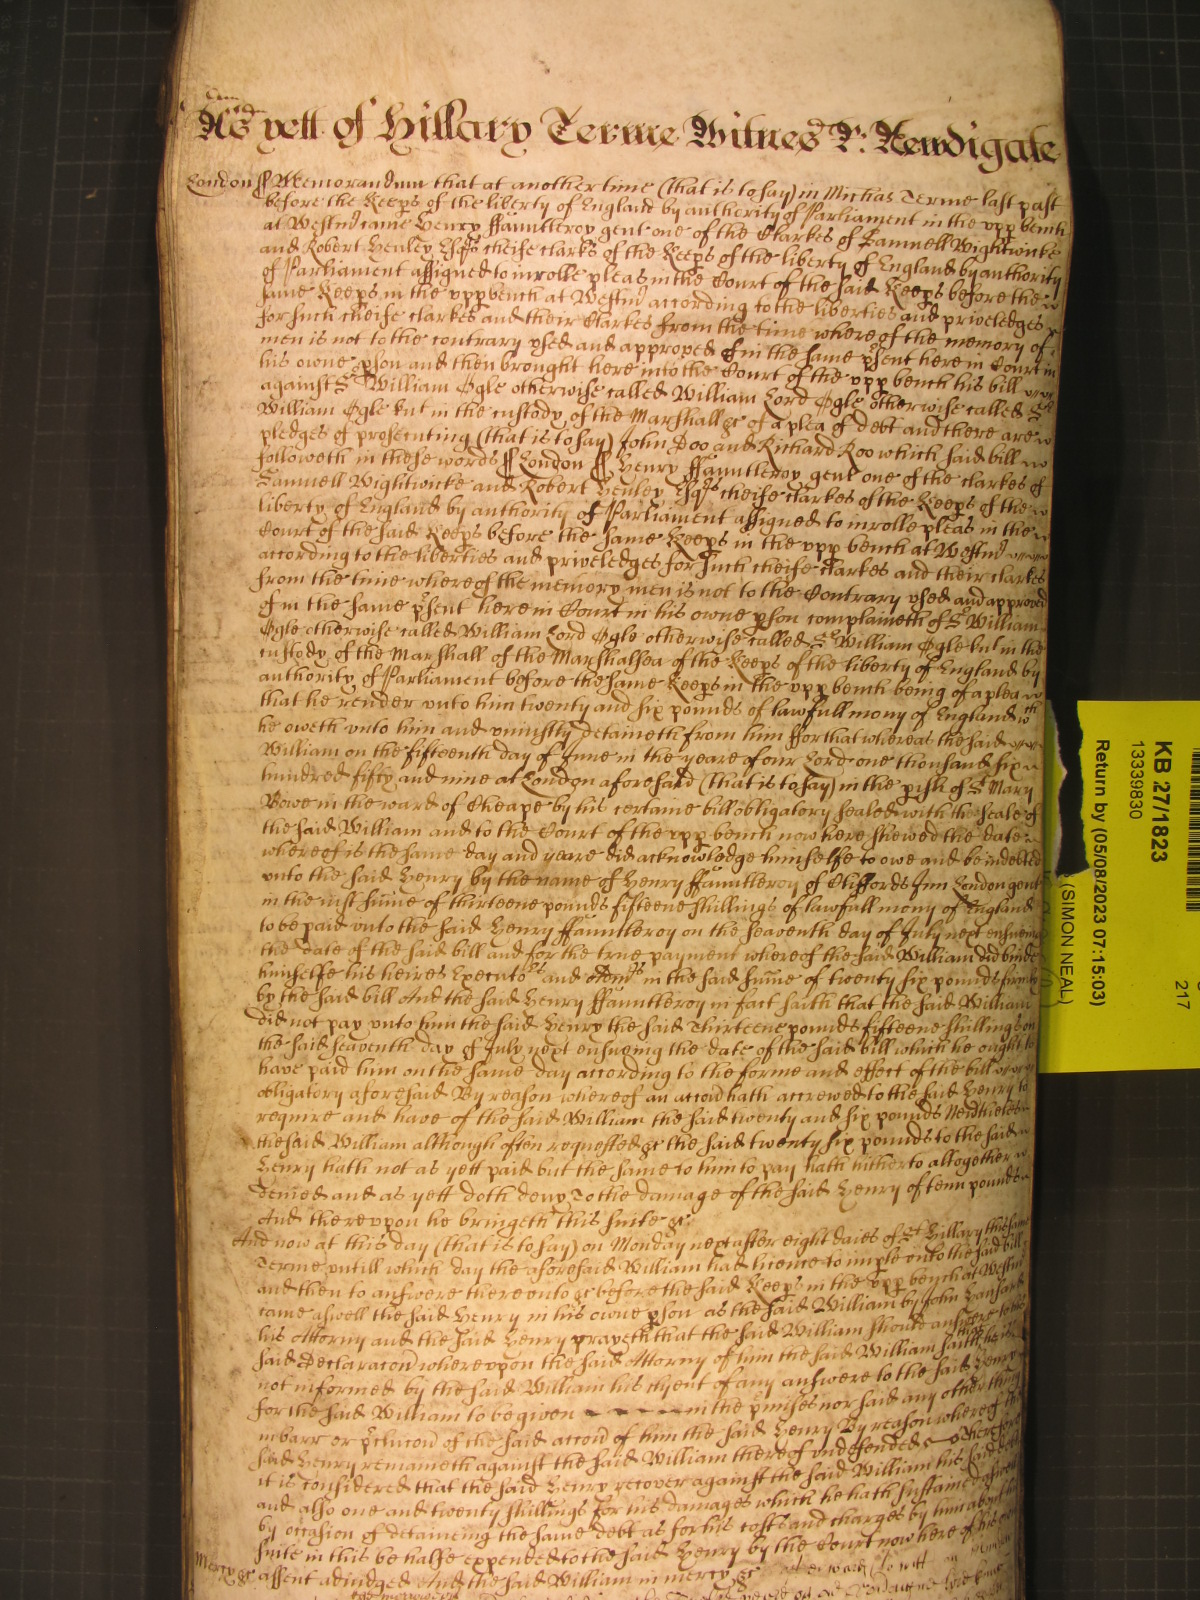 As yett of Hillary Terme Witnes R: Newdigate
London ss Memorandum that at another time (that is to say) in Michas Terme last past
before the Keeps of the liberty of England by authority of Parliament in the upp bench
at Westmr came Henry ffauntleroy gent one of the Clarkes of Samuell Wightwicke
and Robert Henley Esqrs cheife clarks of the Keeps of the liberty of England by authority
of Parliament assigned to inrolle pleas in the Court of the said Keeps before the
same Keeps in the upp bench at Westmr according to the liberties and priveledges
for such cheife clarkes and their Clarkes from the time whereof the memory of
men is not to the contrary used and approved of in the same psent here in Court in
his owne pson and then brought here into the Court of the upp bench his bill
against Sr William Ogle otherwise called William Lord Ogle otherwise called Sr
William Ogle knt in the custody of the Marshall &c of a plea of debt and there are
pledges of prosecuting (that is to say) John Doo and Richard Roo which said bill
followeth in these words ss London ss Henry ffauntleroy gent one of the clarkes of
Samuell Wightwicke and Robert Henley Esqrs cheife clarkes of the Keeps of the
liberty of England by authority of Parliament assigned to inrolle pleas in the
Court of the said Keeps before the same Keeps in the upp bench at Westmr
according to the liberties and priveledges for such cheife clarkes and their clarkes
from the time whereof the memory men is not to the Contrary used and approved
of in the same psent here in Court in his owne pson complaineth of Sr William
Ogle otherwise called William Lord Ogle otherwise called Sr William Ogle knt in the
custody of the Marshall of the Marshalsea of the Keeps of the liberty of England by
authority of Parliament before the same Keeps in the upp bench being of a plea
that he render unto him twenty and six pounds of lawfull mony of England wch
he oweth unto him and uniustly detaineth from him ffor that whereas the said
William on the fifteenth day of June in the yeare of our Lord one thousand six
hundred fifty and nine at London aforesaid (that is to say) in the pish of St Mary
Bowe in the ward of Cheape by his certaine bill obligatory sealed with the seale of
the said William and to the Court of the upp bench now here shewed the date
whereof is the same day and yeare did acknowledge himselfe to owe and be indebted
unto the said Henry by the name of Henry ffauntleroy of Cliffords Inn London gent
in the iust sume of thirteene pounds fifteene shillings of lawfull mony of England
to be paid unto the said Henry ffauntleroy on the seaventh day of July next ensueing
the date of the said bill and for the true payment whereof the said William did binde
himselfe his heires Executors and Admrs in the said sume of twenty six pounds
by the said bill And the said Henry ffauntleroy in fact saith that the said William
did not pay unto him the said Henry the said Thirteene pounds fifteene shillings on
the said seaventh day of July next ensueing the date of the said bill which he ought to
have paid him on the same day according to the forme and effect of the bill
obligatory aforesaid By reason whereof an accion hath accrewed to the said Henry to
require and have of the said William the said twenty and six pounds Neverthelesse
the said William although often requested &c the said twenty six pounds to the said
Henry hath not as yett paid but the same to him to pay hath hitherto altogether
denied and as yett doth deny To the damage of the said Henry of tenn pounds
And thereupon he bringeth this suite &c
And now at this day (that is to say) on Monday next after eight daies of St Hillary this same
Terme untill which day the aforesaid William had licence to imple unto the said bill
and then to answere thereunto &c before the said Keeps in the upp bench at Westmr
came aswell the said Henry in his owne pson as the said William by John
his Attorny and the said Henry prayeth that the said William should answere to the
said declaracon whereupon the said Attorny of him the said William saith he is
not informed by the said William his clyent of any answere to the said Henry
for the said William to be given in the pmises nor said any other thing
in barr or pclucon of the said accion of him the said Henry By reason whereof the
said Henry remaineth against the said William thereof undefended Therefore
it is considered that the said Henry recover against the said William his said debt
and also one and twenty shillings for his damages which he hath sustained aswell
by occasion of detaineing the same debt as for his costs and charges by him about his
suite in this behalfe expended to the said Henry by the Court now here of his
Mercy &c assent adiudged And the said William in mercy &c
KB 27/1823
13339830
Return by (05/08/2023 07:15:03)
(SIMON NEAL)
217